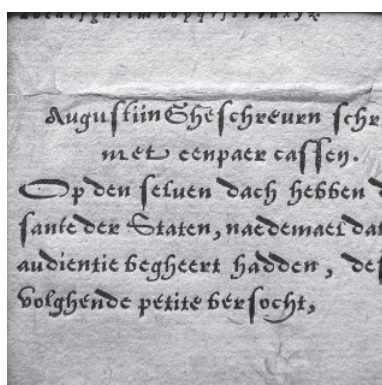 Augustiin
met eenpaer cassen.
Op den seluen dach hebben
sante der Staten, naedemael dat
audientie begheert hadden, des
volghende petite versocht,